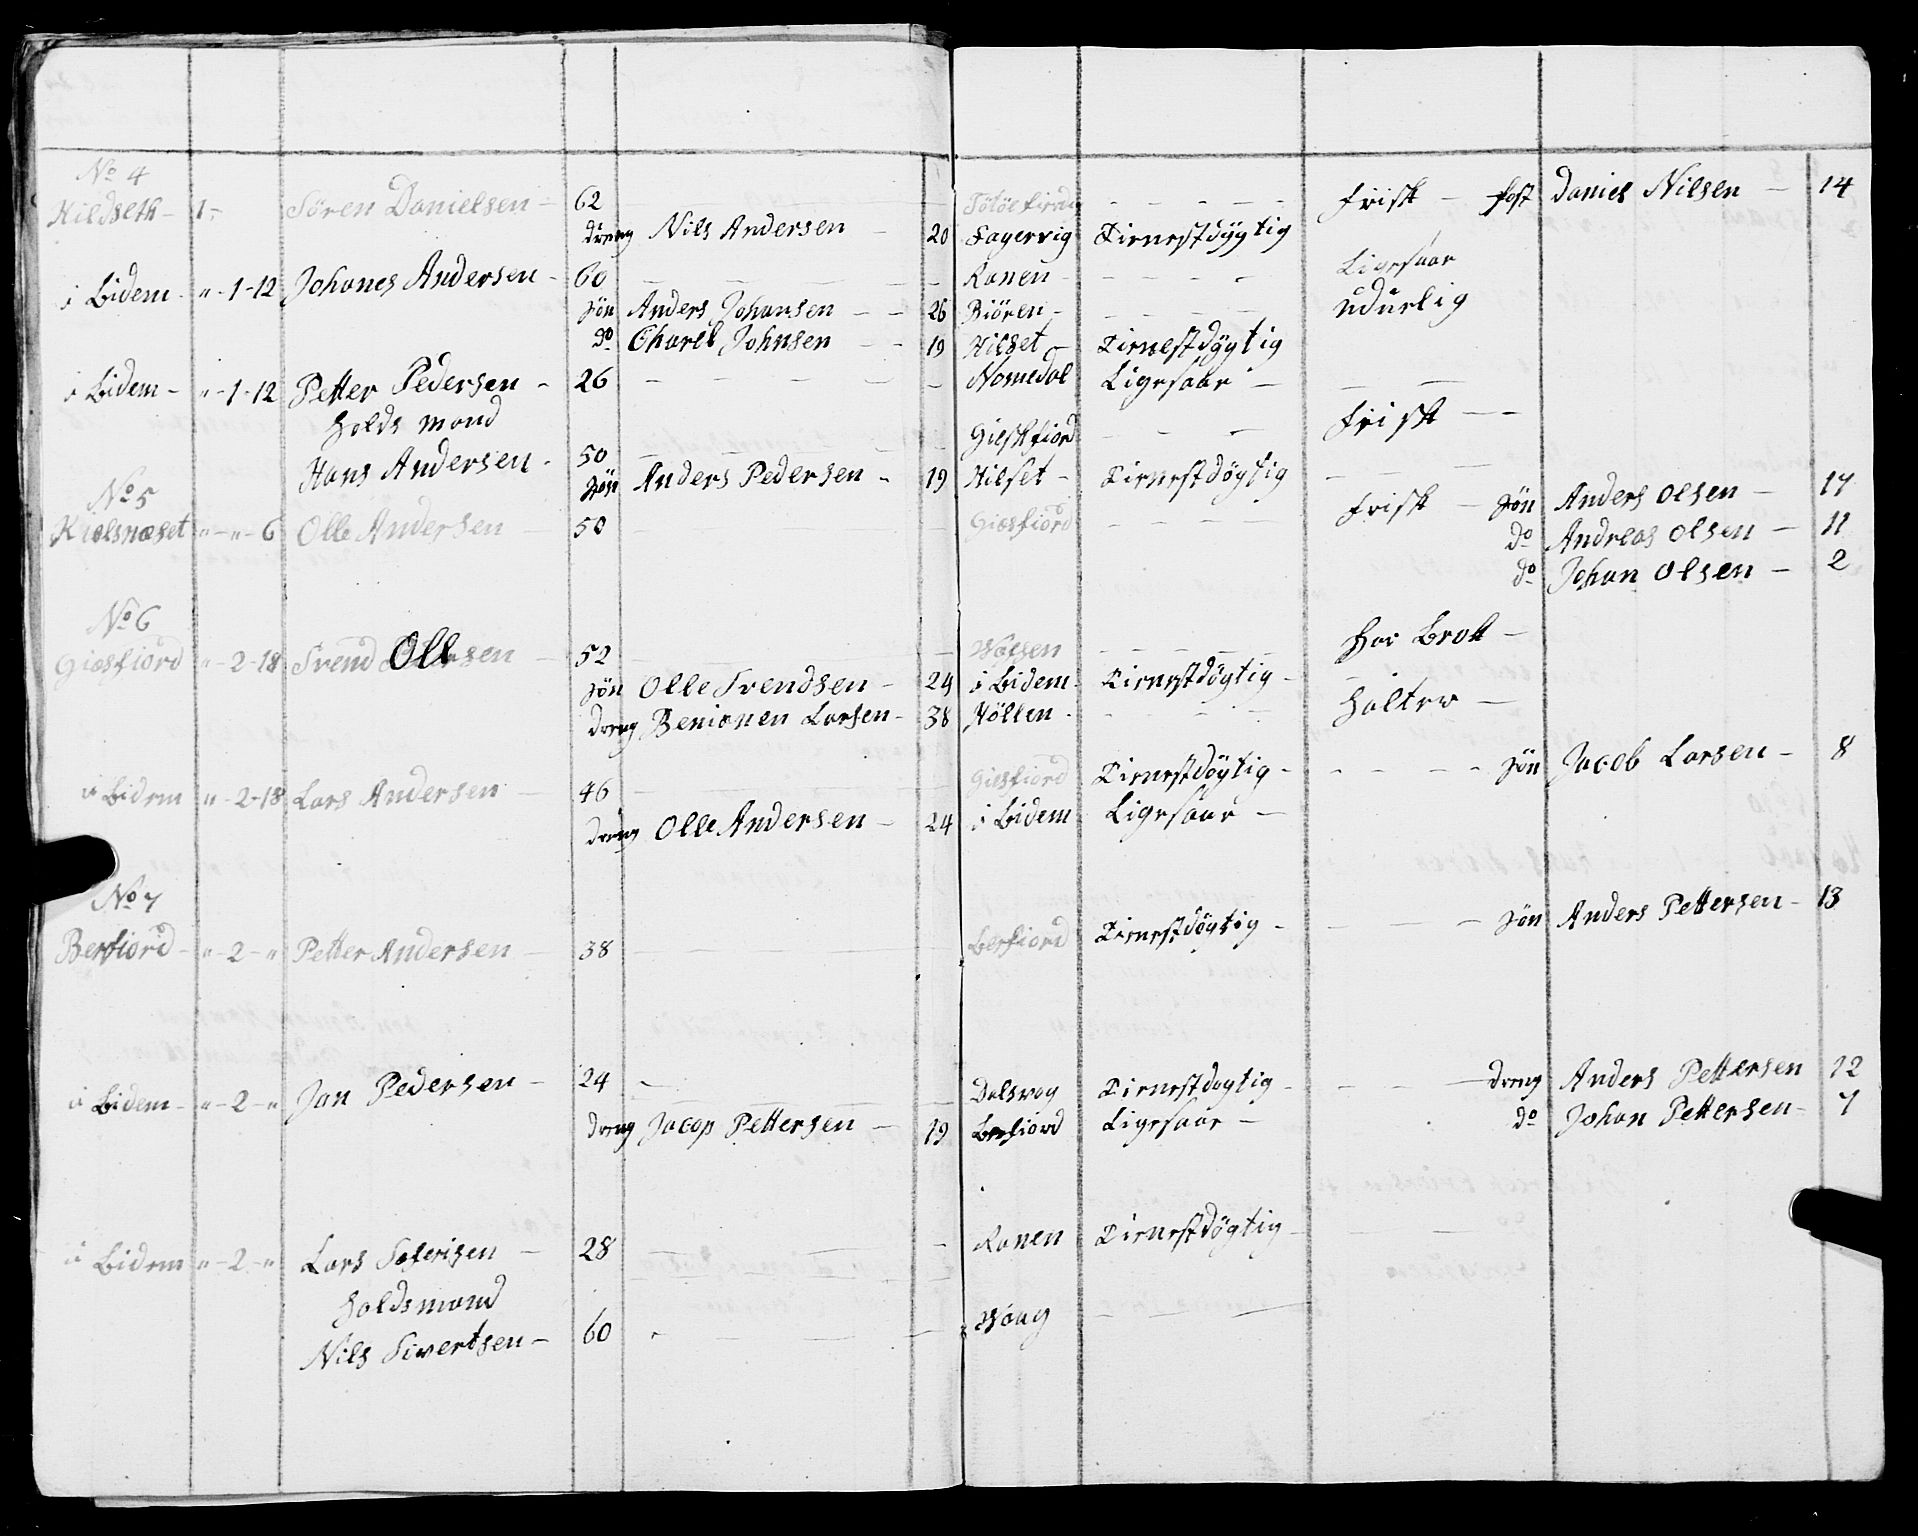 No 4
Hildseth - 1 - Sören Danielsen - 62 - Frisk - post Daniel Nilsen - 14
dreng Nils Andersen - 20 Fagervig Tienestdygtig
i Bidem - " - 1 - 12 Johanes Andersen - 60 - Ranen - Ligesaar
Sön Anders Johansen - 26 Biören - udurlig
do Charel Johnsen - 19 Hilset - Tienestdygtig
i Bidem - " - 1 - 12 Petter Pedersen - 26 - Nomedal Ligesaar -
holds mand Gilskfiord - Frisk -
Hans Andersen - 50
Sön Anders Pedersen - 19 Hilset - Tienestdögtig
No 5
Kielsnæset " - " - 6 Olle Andersen - 50 - Giæsfiord - Frisk - Sön Anders Olsen - 17
do Andreas Olsen - 11
do Johan Olsen - 2
No 6
Giæsfiord " - 2 - 18 Svend Ollsen - 52 - Wefsen - Har Brok -
Sön Olle Svendsen - 24 i Bidem - Tienestdögtig -
dreng Benionen Larsen - 38 Höllen - halter -
i Bidem " - 2 - 18 Lars Andersen - 46 - Giesfiord Tienestdögtig - Sön Jacob Larsen - 8
dreng Olle Andersen - 24 i Bidem Ligesaar -
No 7
Berfiord - " - 2 - " Petter Andersen - 38 - Berfiord Tienestdögtig - Sön Anders Pettersen - 13
i Bidem - " - 2 - " Jan Pedersen - 24 - Dalsvog Tienestdogtig - dreng Anders Pettersen 12
dreng Jacop Pettersen - 19 Berfiord Ligesaar - do Johan Pettersen - 7
i Bidem " - 2 - " Lars Seferisen - 28 - Ranen Tienestdögtig -
holdsmand
Nils Sivertsen - 60 - Waag -